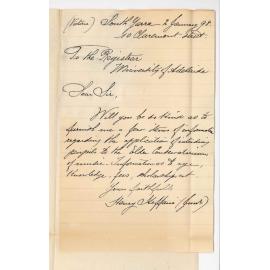 (Victoria) South Yarra 2 January 98.
20 Claremont Street.
To the Registrar
University of Adelaide
Dear Sir,
Will you be so kind as to
furnish me a few items of information
regarding the application of intending
pupils to the Elder Conservatorium
of music. Information as to age,
knowledge, fees, scholarships &c
Yours faithfully
Henry Steffens